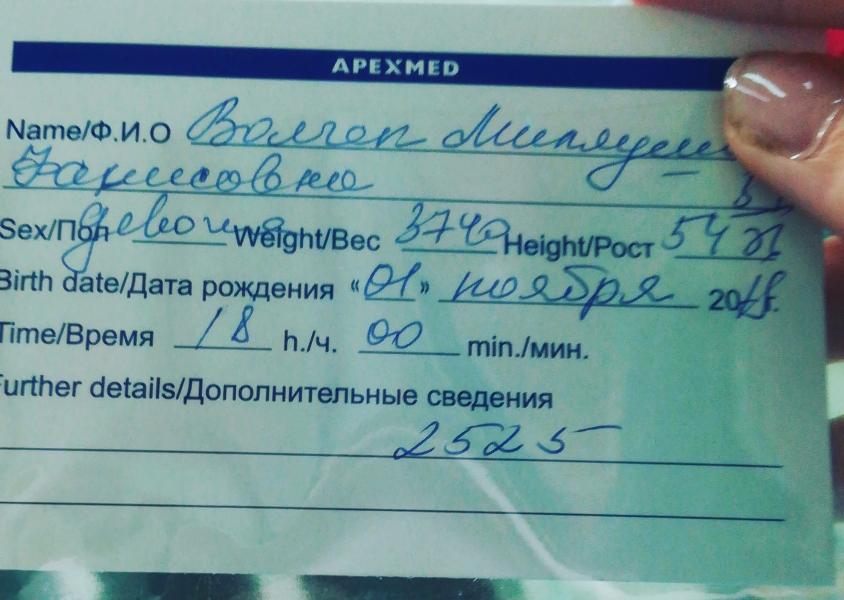 APEXMED
Name/Ф.И.О Волчек
Sex/Пол девочка Weight/Вес 3740 Height/Рост 54
Birth date/Дата рождения «01» ноября 20
Time/Время 18 h./ч. 00 min./мин.
Further details/Дополнительные сведения
2525